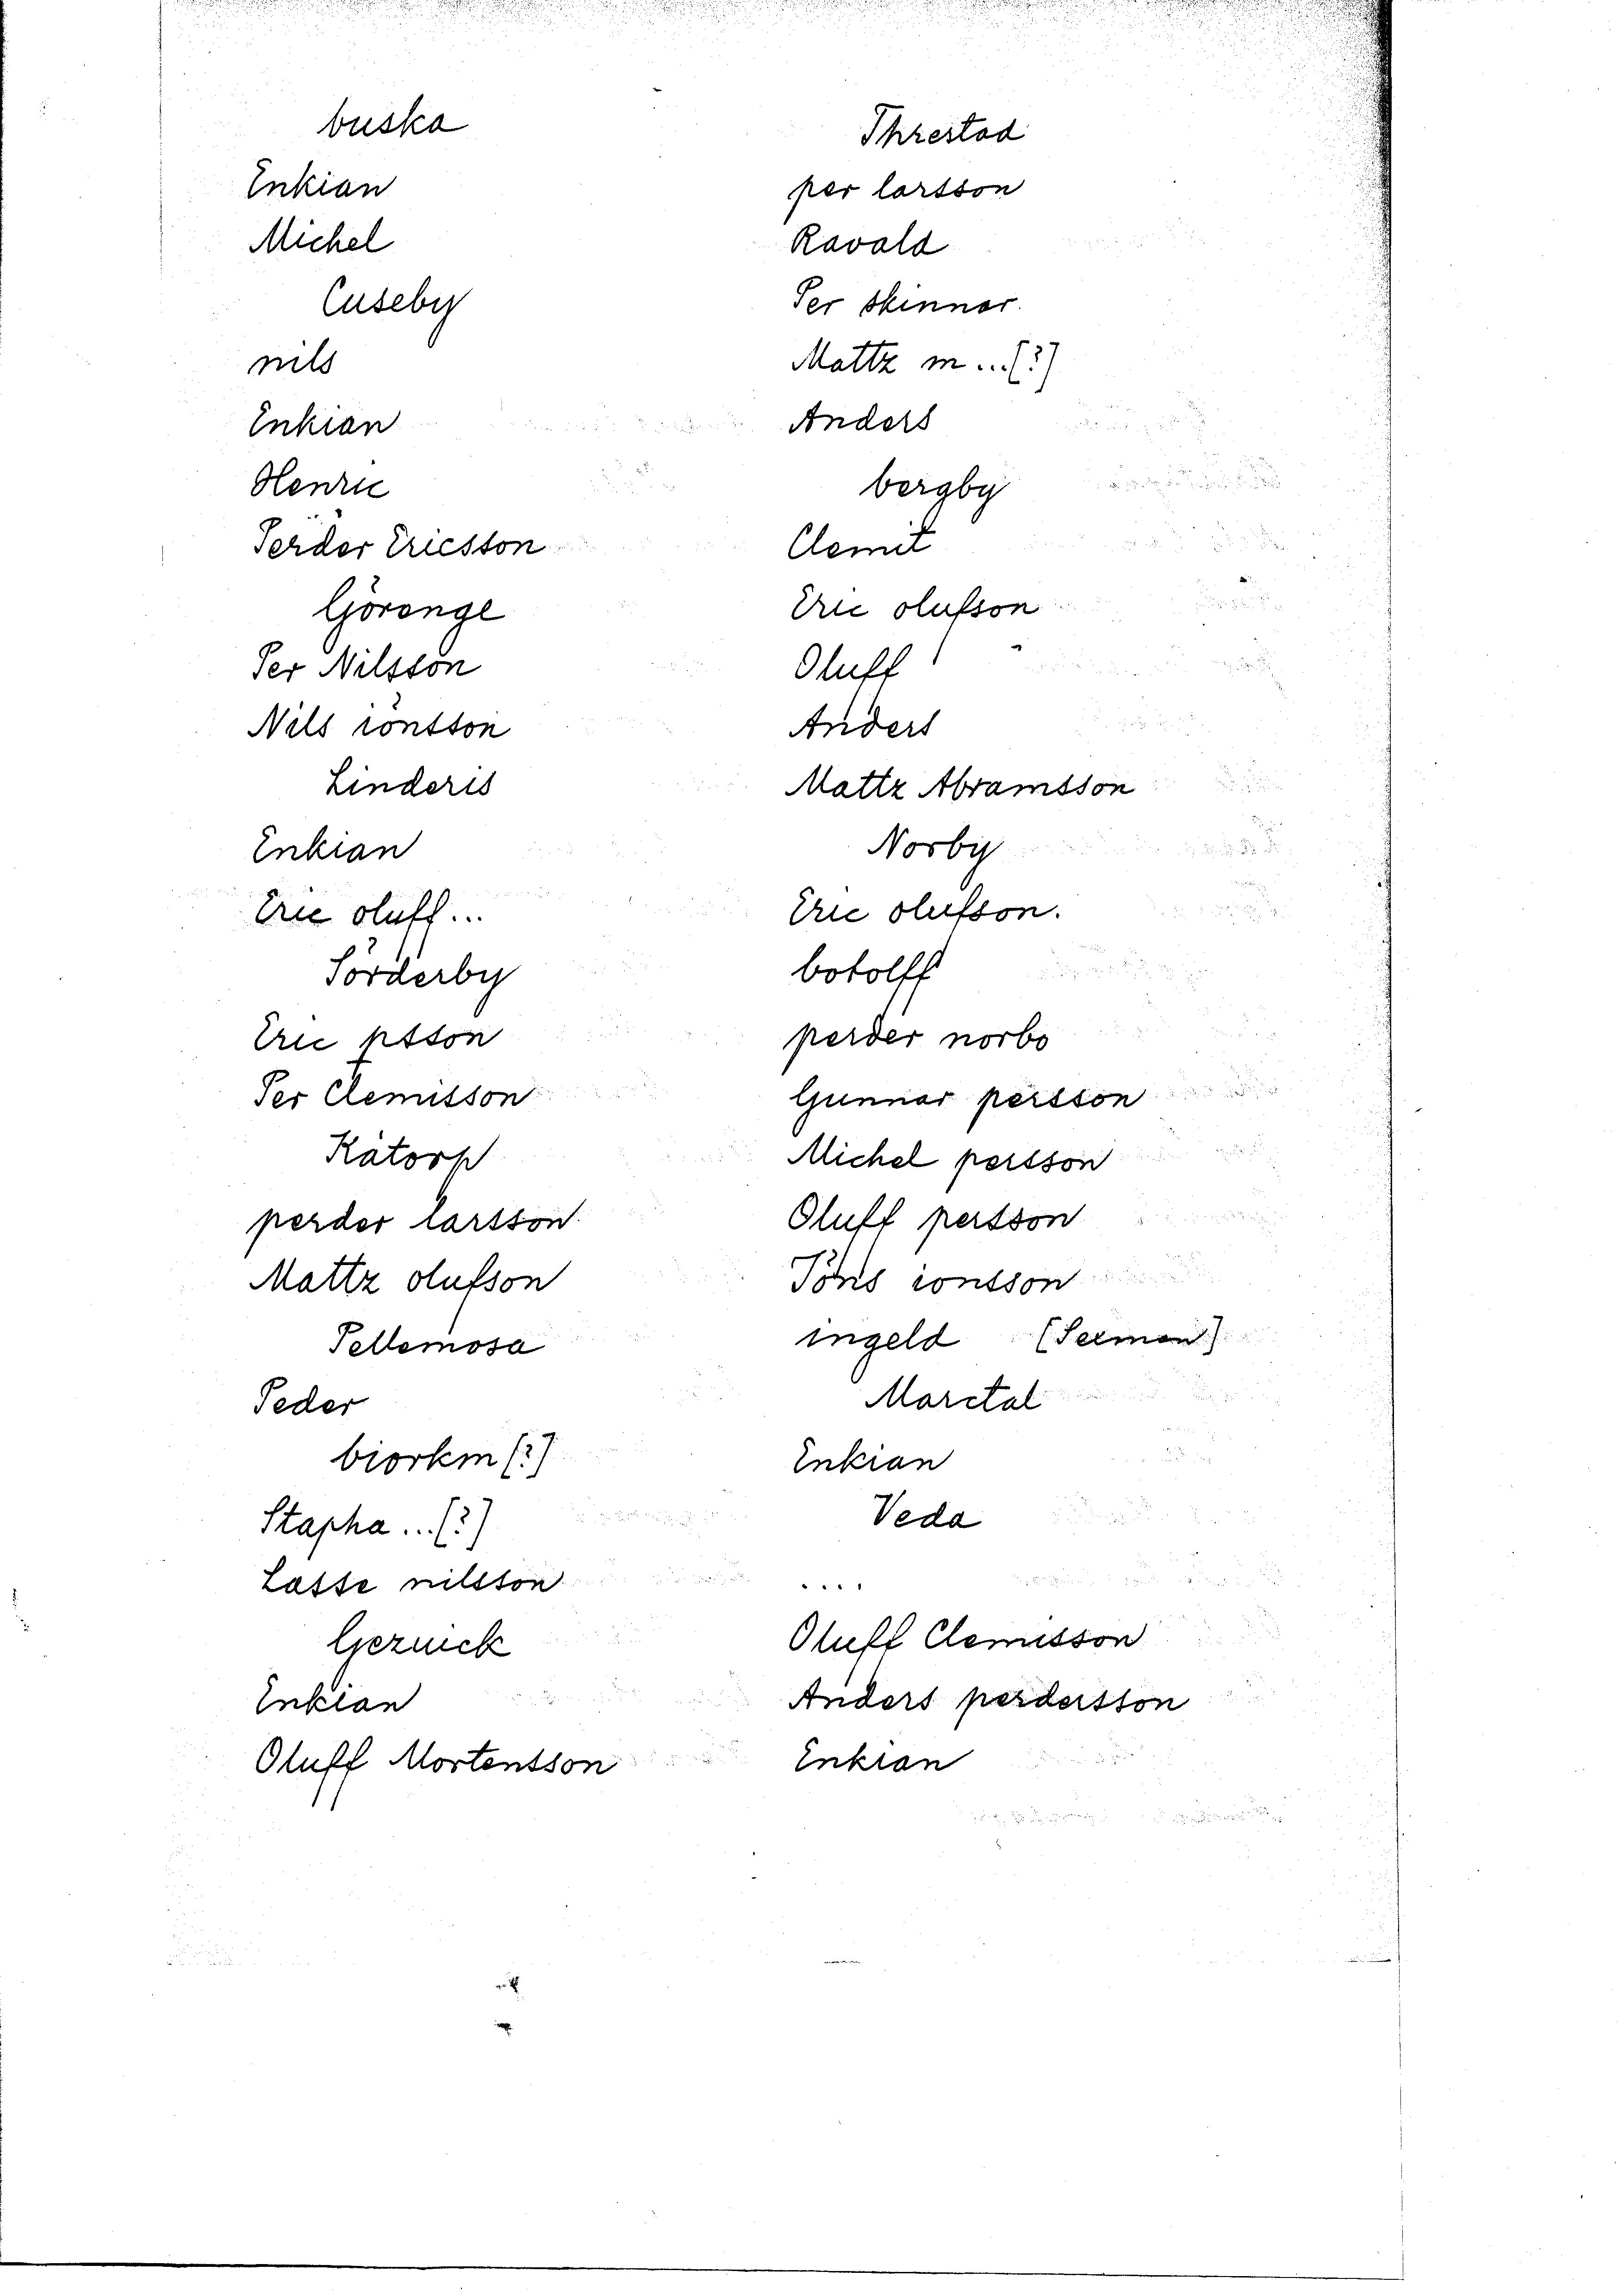 buska
Enkian
Michel
Cuseby
nils
Enkian
Henric
Perder Ericsson
Görenge
Per Nilsson
Nils ionsson
Linderis
Enkian
Eric oluff...
Sörderby
Eric psson
Per Clemisson
Råtorp
perder larsson
Mattz olufson
Pellemosa
Peder
biorkm (?)
Stapha... (?)
Lasse nilsson
Gezuick
Enkian
Oluff Mortensson
Threstad
per larsson
Ravald
Per skinnar.
Mattz m... (?)
Anders
bergby
Clemit
Eric olufson
Oluff
Anders
Mattz Abramsson
Norby
Eric olufson.
botolff
perder norbo
Gunnar persson
Michel persson
Oluff persson
Jöns ionsson
ingeld (Seeman)
Marctal
Enkian
Veda
....
Oluff Clemisson
Anders perdersson
Enkian